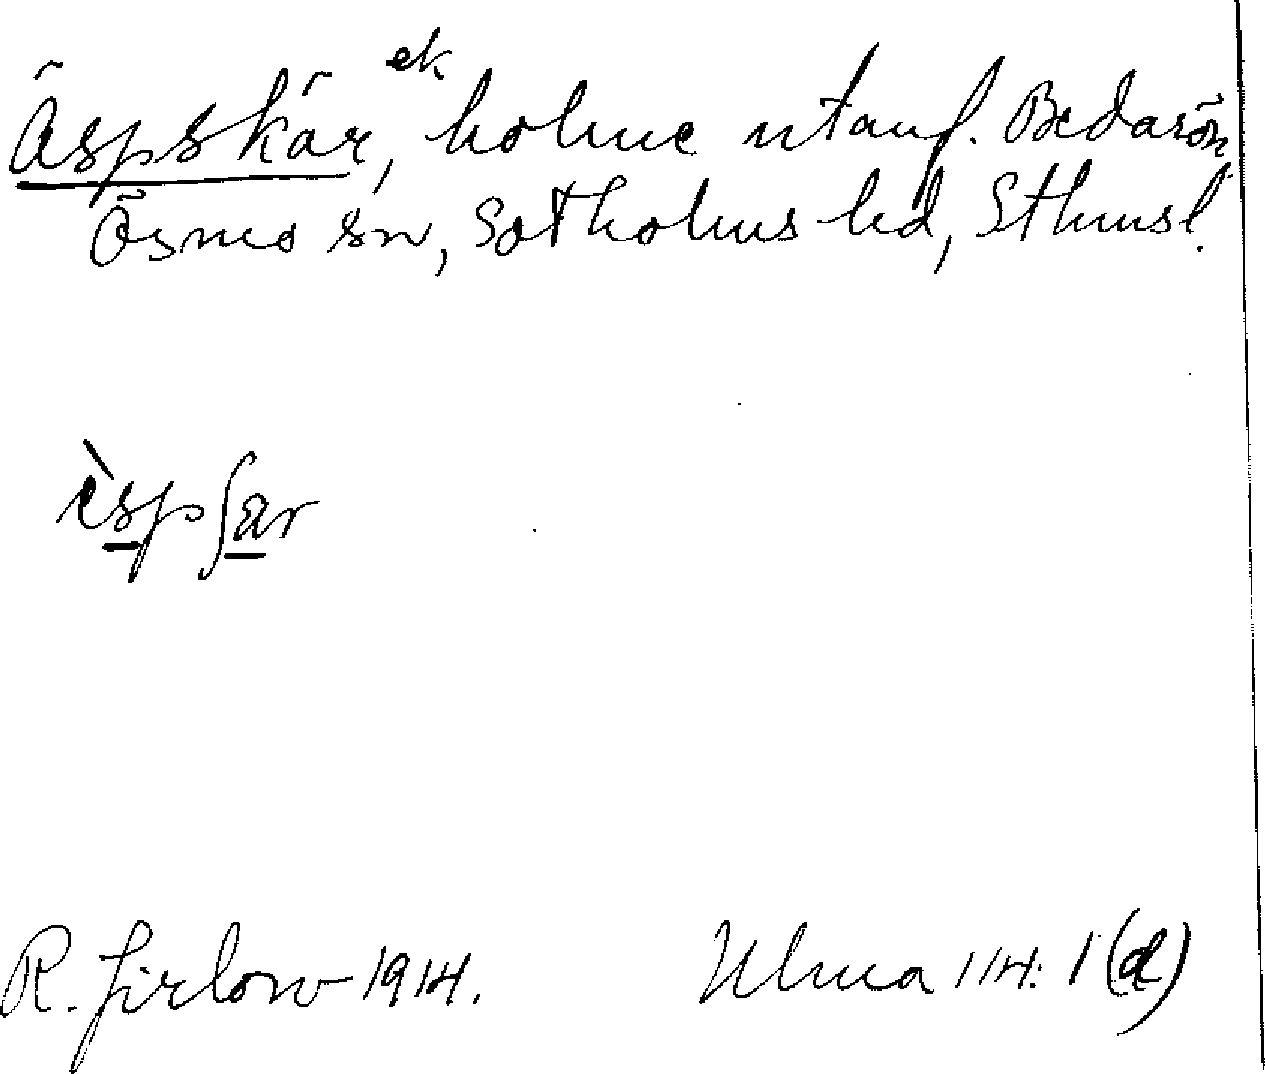 Äspskär, ek holme utanf. Bedarön
Ösmo sn, Sotholms hd, Sthmsl.
èspʃär
R. Jirlow 1914. Ulma 114: 1 (d)